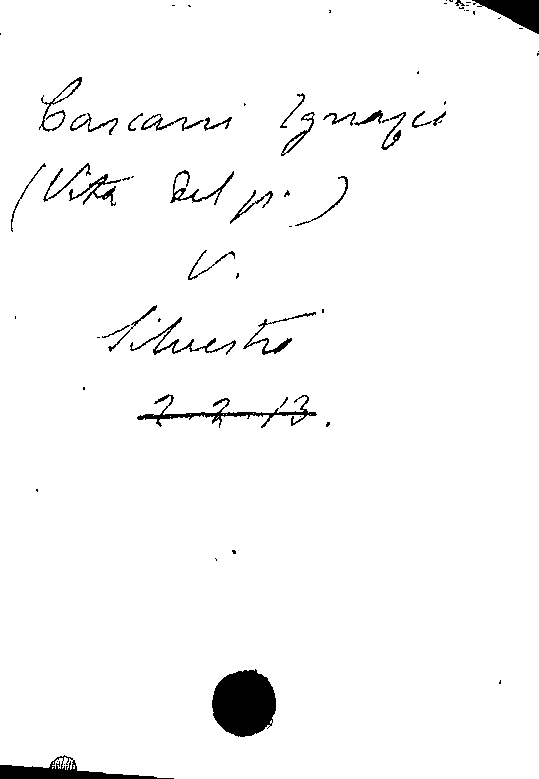 Carcani Ignazio
(Vita del p.)
V.
Silvestri
2. 2. 13.